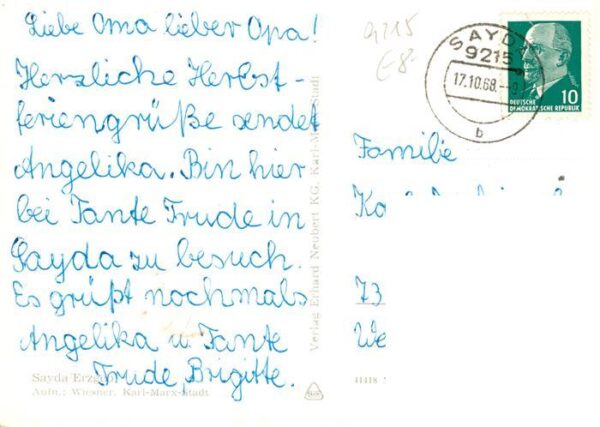 Liebe Oma lieber Opa!
Herzliche Herbst-
feriengrüße sendet
Angelika. Bin hier
bei Tante Trude in
Sayda zu besuch.
Es grüßt nochmals
Angelika u. Tante
Trude, Brigitte.
Sayda Erzg
Aufn.: Wiesner, Karl-Marx-Stadt
Verlag Erhard Neubert KG, Karl-Marx-Stadt
9215
SAYDA
9215
17.10.68.
b
DEUTSCHE
DEMOKRATISCHE REPUBLIK
10
Familie
Ko
73
We
41418